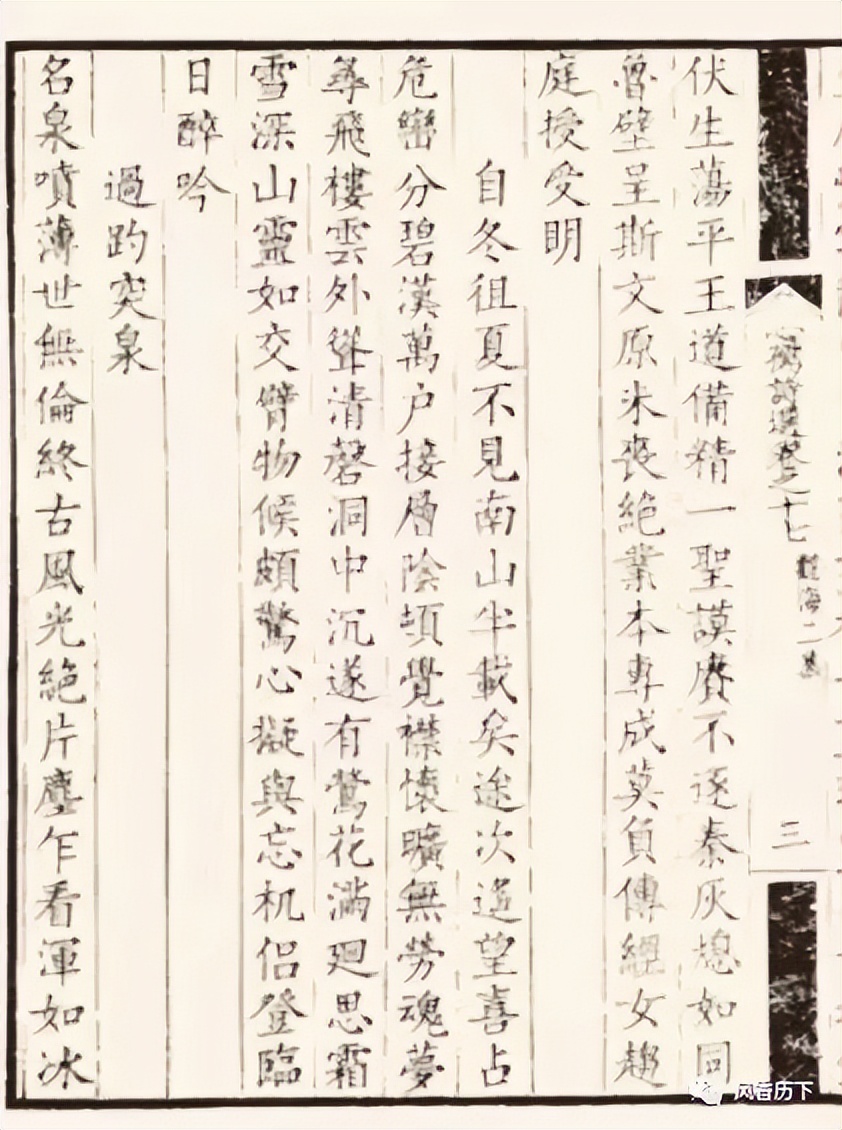 詩選卷之十七
二集
三
伏生蕩平王道備精一聖謨賡不逐秦灰熄如同
魯壁呈斯文原未喪絕業本專成莫負傳經女趨
庭授受明
自冬徂夏不見南山半載矣途次遥望喜占
危巒分碧漢萬户接層陰頓覺襟懷曠無勞魂夢
尋飛樓雲外聳清磬洞中沉遂有鶯花滿廻思霜
雪深山靈如交臂物候頗驚心擬與忘机侣登臨
日醉吟
過趵突泉
名泉噴薄世無倫終古風光絶片塵乍看渾如冰
风香历下